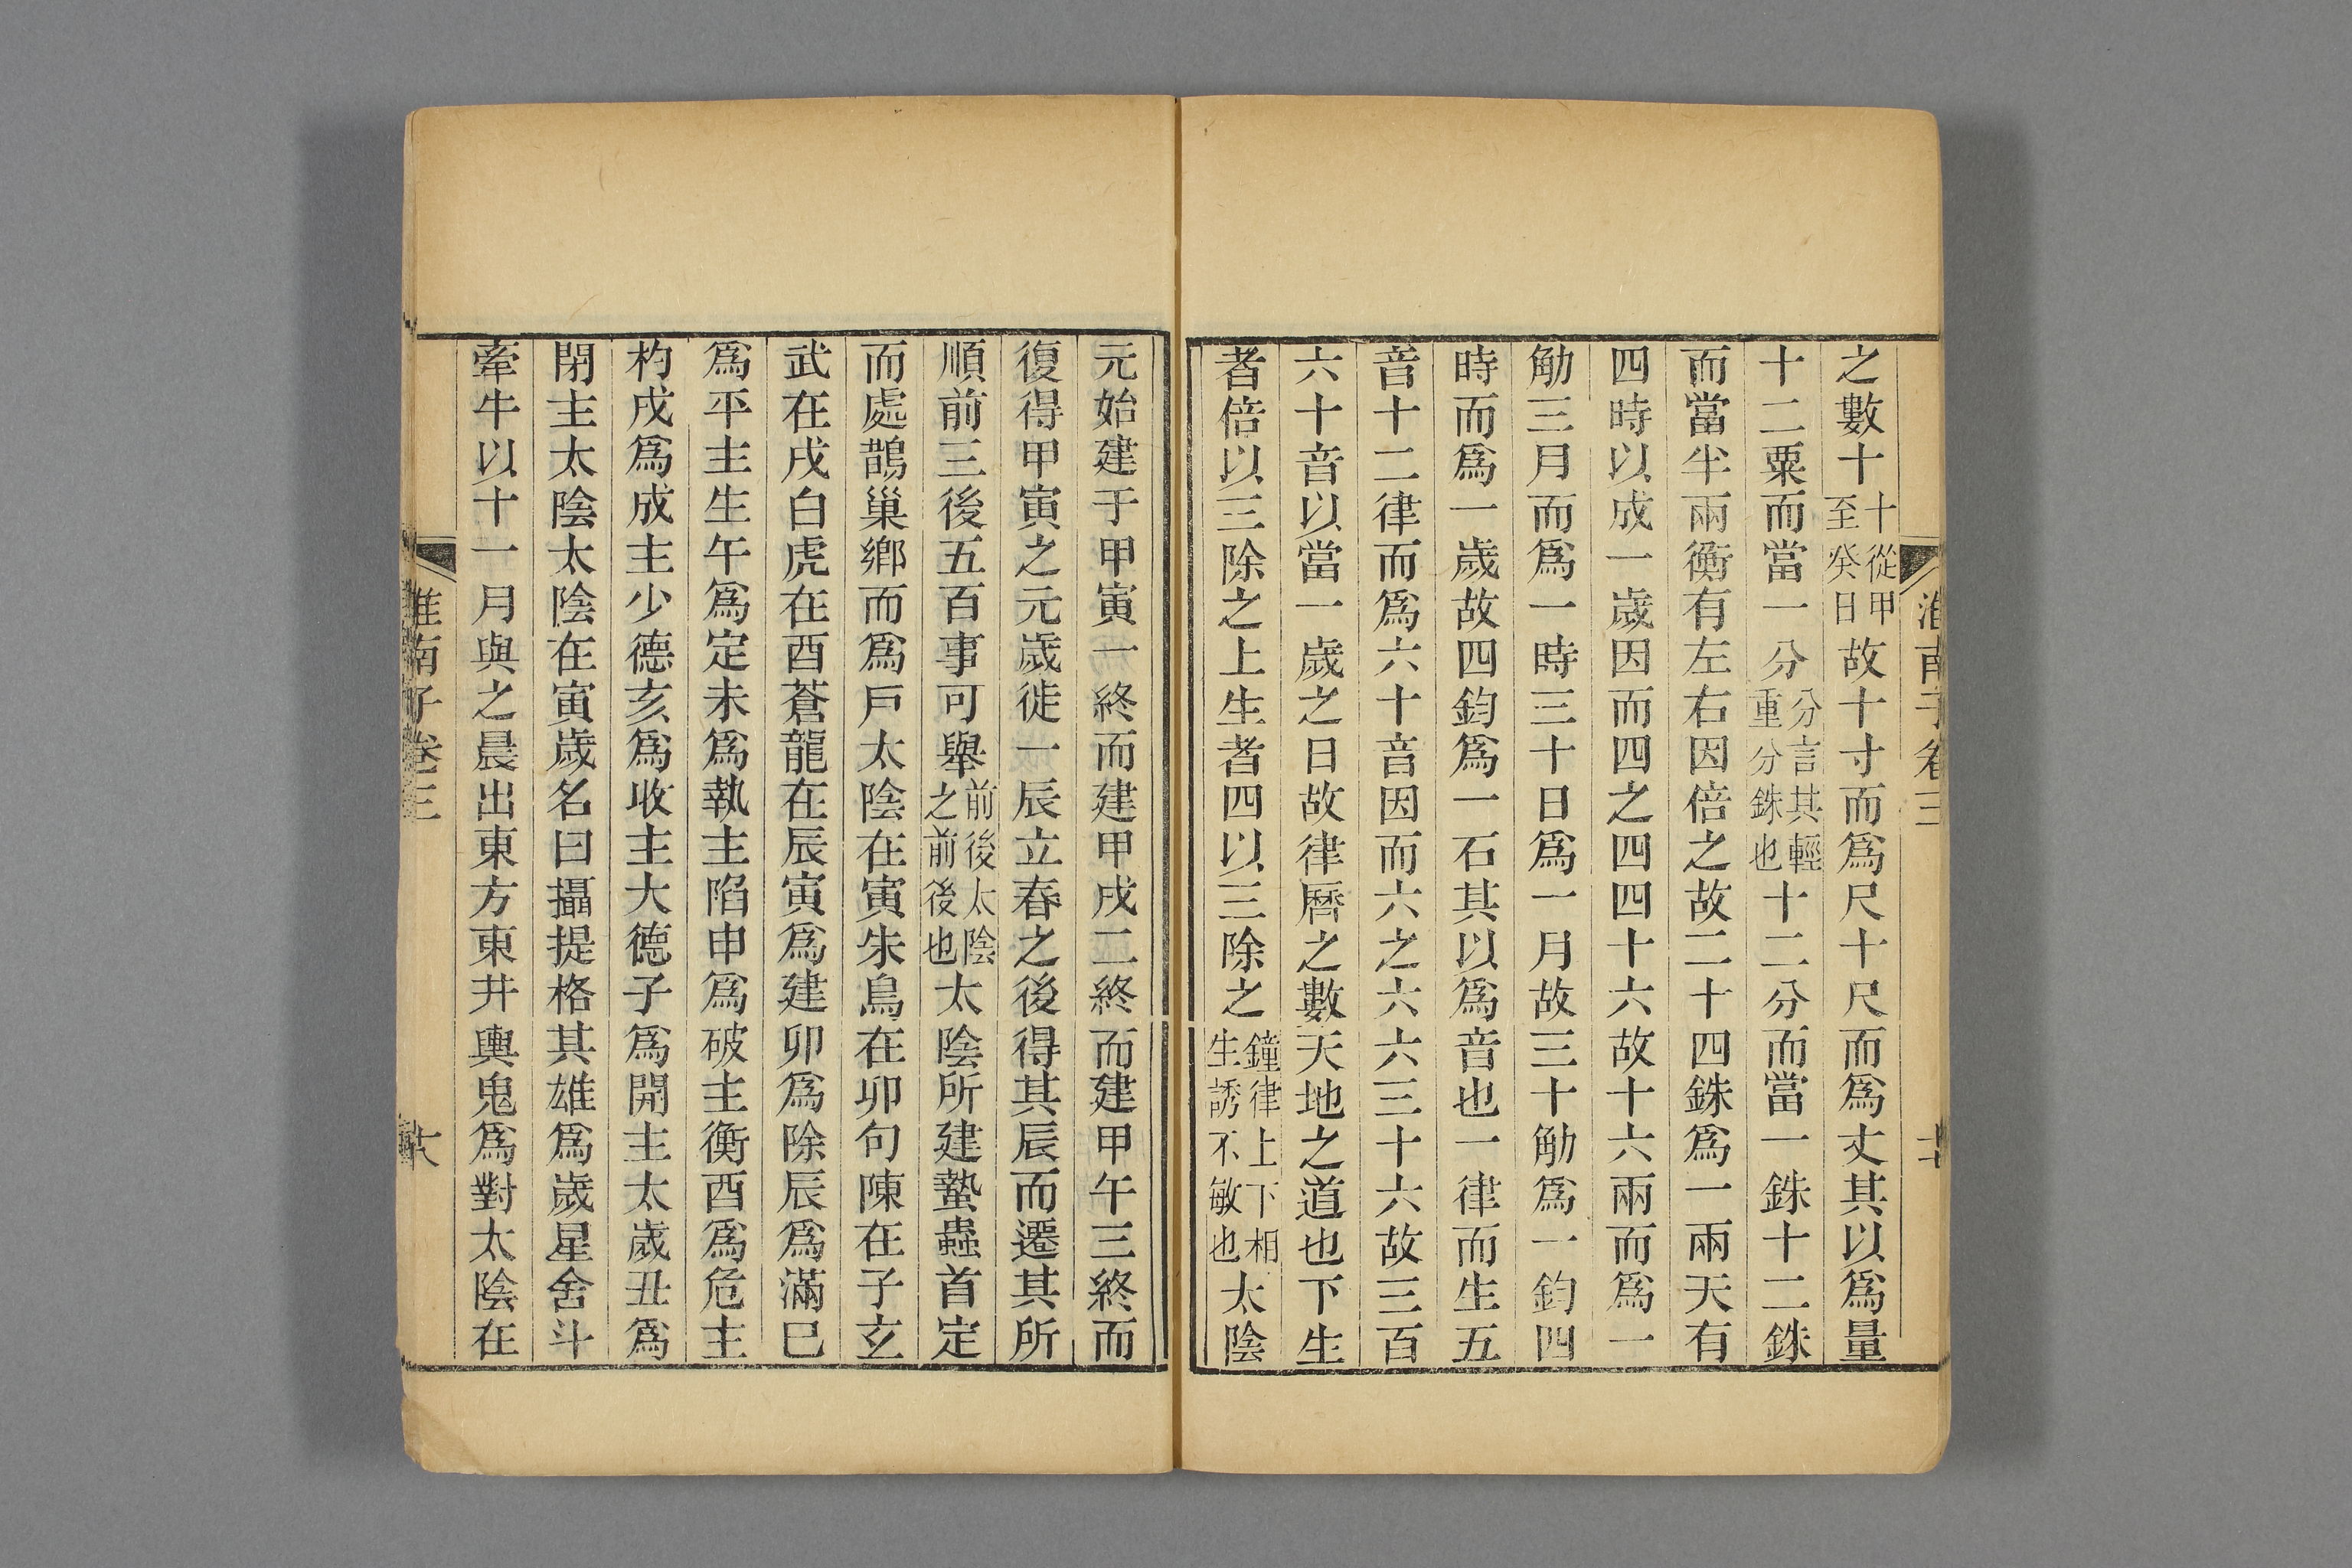 淮南子卷三
之數十十從甲至癸日故十寸而爲尺十尺而爲丈其以爲量
十二粟而當一分分言其輕重分銖也十二分而當一銖十二銖
而當半兩衡有左右因倍之故二十四銖爲一兩天有
四時以成一歲因而四之四四十六故十六兩而爲一
觔三月而爲一時三十日爲一月故三十觔爲一鈞四
時而爲一歲故四鈞爲一石其以爲音也一律而生五
音十二律而爲六十音因而六之六六三十六故三百
六十音以當一歲之日故律曆之數天地之道也下生
者倍以三除之上生者四以三除之鐘律上下相生誘不敏也太陰
元始建于甲寅一終而建甲戌二終而建甲午三終而
復得甲寅之元歲徙一辰立春之後得其辰而遷其所
順前三後五百事可舉前後太陰之前後也太陰所建蟄蟲首定
而處鵲巢鄉而爲戶太陰在寅朱鳥在卯句陳在子玄
武在戌白虎在酉蒼龍在辰寅爲建卯爲除辰爲滿巳
爲平主生午爲定未爲執主陷申爲破主衡酉爲危主
杓戌爲成主少德亥爲收主大德子爲開主太歲丑爲
閉主太陰太陰在寅歲名曰攝提格其雄爲歲星舍斗
牽牛以十一月與之晨出東方東井輿鬼爲對太陰在
淮南子卷三